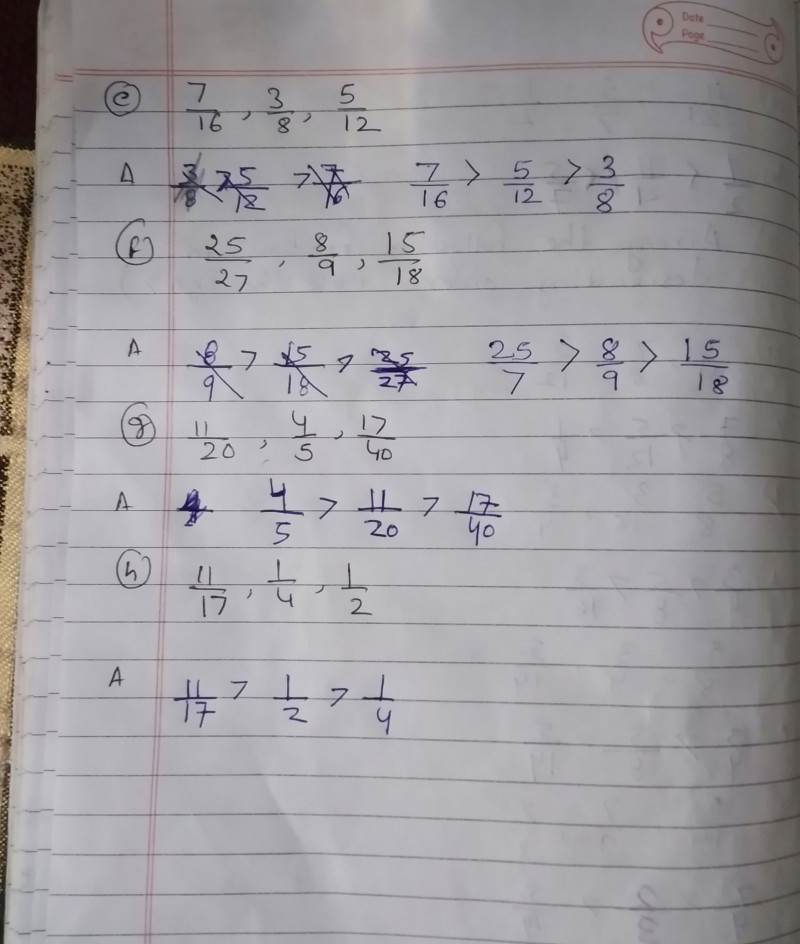 Date
Page
(e) 7/16, 3/8, 5/12
A 3/8 > 5/12 > 7/16 7/16 > 5/12 > 3/8
(f) 25/27, 8/9, 15/18
A 8/9 > 15/18 > 25/27 25/7 > 8/9 > 15/18
(g) 11/20, 4/5, 17/40
A 4/5 > 11/20 > 17/40
(h) 11/17, 1/4, 1/2
A 11/17 > 1/2 > 1/4